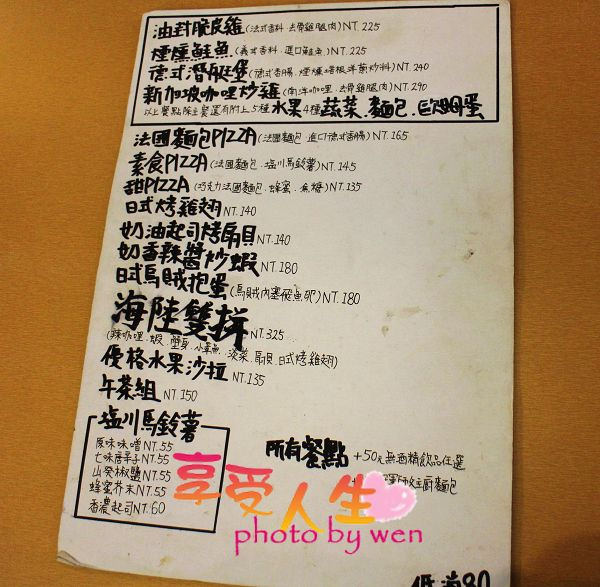 油封脆皮雞(法式香料.去骨雞腿肉)NT.225
煙燻鮭魚(義式香料.進口鮭魚)NT.225
德式潛艇堡(德式香腸.煙燻培根洋蔥炒料)NT.240
新加坡咖哩炒雞(南洋咖哩.去骨雞腿肉)NT.290
以上餐點除主餐還有附上5種水果4種蔬菜.麵包.歐姆蛋
法國麵包PIZZA(法國麵包.進口德式香腸)NT.165
素食PIZZA(法國麵包.塩川馬鈴薯)NT.145
甜PIZZA(巧克力法國麵包.蜂蜜.焦糖)NT.135
日式烤雞翅NT.140
奶油起司烤扇貝NT.140
奶香辣醬炒蝦NT.180
日式烏賊抱蛋(烏賊內塞飛魚卵)NT.180
海陸雙拼NT.325
(辣咖哩.蝦.蟹身.小章魚.淡菜.扇貝.日式烤雞翅)
優格水果沙拉NT.135
午茶組NT.150
塩川馬鈴薯
原味味噌NT.55
七味唐辛子NT.55
山癸椒鹽NT.55
蜂蜜芥末NT.55
香濃起司NT.60
所有餐點
+50元無酒精飲品任選
主廚麵包
享受人生
photo by wen
低消80